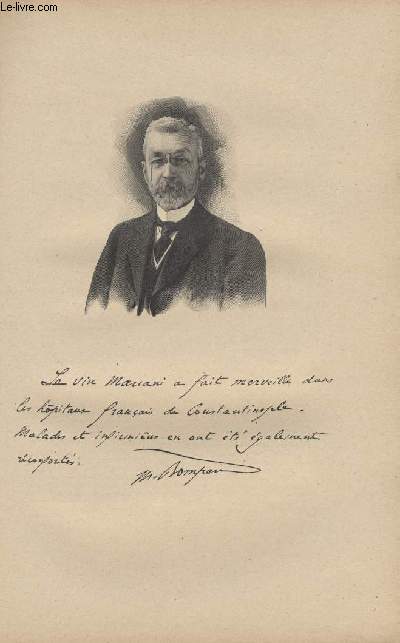 Le-livre.com
Le vin Mariani a fait merveille dans
les hôpitaux français de Constantinople.
Malades et infirmières en ont été également
réconfortés.
M. Bompard